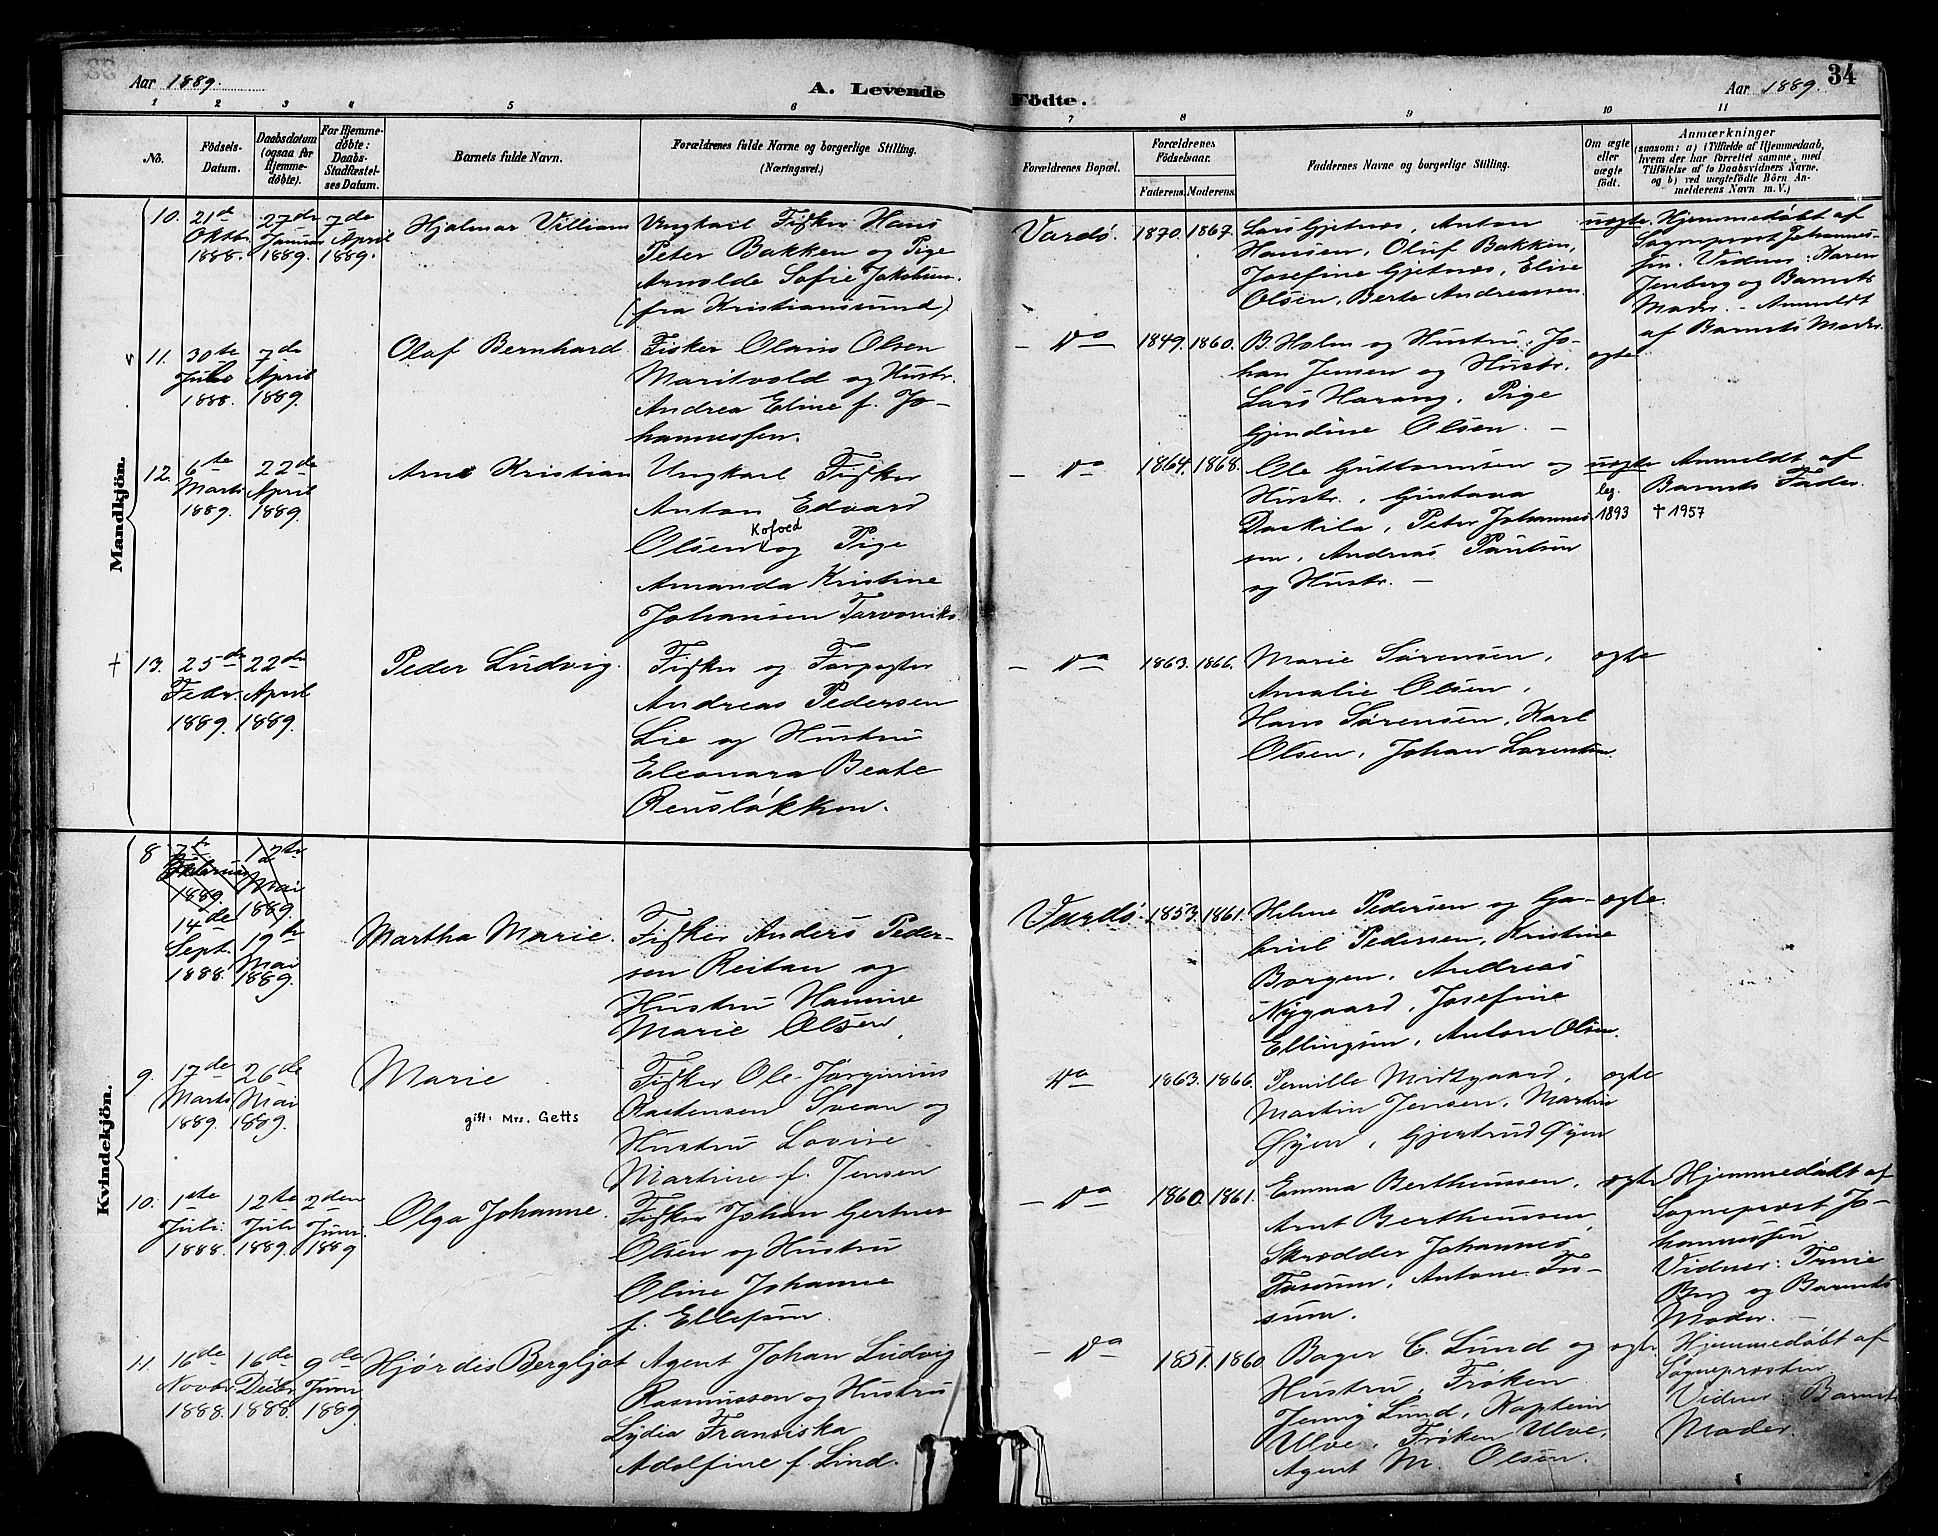 Aar 1889.
A. Levende Födte.
Aar 1889.
34
1 2 3 4 5 6 7 8 9 10 11
No.
Födsels-
Datum.
Daabsdatum
(ogsaa for
Hjemme-
døbte).
For Hjemme-
døbte:
Daabs-
Stadfæstel-
ses Datum.
Barnets fulde Navn.
Forældrenes fulde Navne og borgerlige Stilling.
(Næringsvei.)
Forældrenes Bopæl.
Forældrenes
Födselsaar.
Faderens. Moderens.
Faddernes Navne og borgerlige Stilling.
Om ægte
eller
uægte
født.
Anmærkninger
(saasom: a) i Tilfælde af Hjemmedaab,
hvem der har forrettet samme, med
Tilföielse af to Daabsvidners Navne,
og b) ved uægtefödte Börn An-
melderens Navn m. V.)
Mandkjön.
10.
21de
Oktbr
1888.
27de
Januar
1889.
7de
April
1889.
Hjalmar Villiam
Ungkarl Fisker Hans
Peter Bakken og Pige
Arnolde Sofie Jakobsen.
(fra Kristiansund)
Vardø.
1870. 1867.
Lars Gjetnæs, Anton
Hansen, Oluf Bakken,
Josefine Gjetnæs, Elise
Olsen, Berte Andreassen
uægte
Hjemmedøbt af
Sogneprost Johannes-
sen. Vidner: Karen
Jenberg og Barnets
Moder. - Anmeldt
af Barnets Moder.
v 11.
30te
Juli
1888.
7de
April
1889.
Olaf Bernhard.
Fisker Olaus Olsen
Maritvold og Hustr.
Andrea Eline f. Jo-
hannessen.
- Do
1849. 1860.
B. Holm og Hustru, Jo-
han Jensen og Hustr.
Lars Harang, Pige
Gjendine Olsen. -
ægte
12.
6te
Marts
1889.
22de
April
1889.
Arne Kristian
Ungkarl Fisker
Anton Edvard
Kofoed
Olsen og Pige
Amanda Kristine
Johansen Tarvoniks
- Do
1864. 1868.
Ole Guttormsen og
Hustr., Gustava
Daskila, Peter Johannes-
sen, Andreas Paulsen
og Hustr. -
uægte
leg.
1893
Anmeldt af
Barnets Fader.
† 1957
† 13.
25de
Febr.
1889.
22de
April
1889.
Peder Ludvig.
Fisker og Forpagter
Andreas Pedersen
Lie og Hustru
Eleonora Beate
Rensløkken.
- Do
1863. 1866.
Marie Sørensen,
Amalie Olsen,
Hans Sørensen, Karl
Olsen, Johan Lorentsen
ægte
Kvindekjön.
8
1889.
14de
Sept.
1888.
12te
Mai
1889.
19de
Mai
1889.
Martha Marie.
Fisker Anders Peder-
sen Reitan og
Hustru Hansine
Marie Olsen.
Vardø.
1853. 1861.
Helene Pedersen og Ga-
briel Pedersen, Kristine
Borgen, Andreas
Nygaard, Josefine
Ellingsen, Anton Olsen.
ægte.
9.
17de
Marts
1889.
26de
Mai
1889.
Marie
gift: Mrs. Getts
Fisker Ole Jørginius
Karstensen Svean og
Hustru Lovise
Martine f. Jensen
Do
1863. 1866.
Pernille Midtgaard,
Martin Jensen, Martin
Øyen, Gjertrud Øyen
ægte
10.
1ste
Juli
1888.
12te
Juli
1889.
2den
Juni
1889
Olga Johanne.
Fisker Johan Gertner
Olsen og Hustru
Oline Johanne
f. Ellefsen.
- Do
1860. 1861.
Emma Bertheussen,
Arnt Bertheussen,
Skrædder Johannes
Fossum, Antone Fos-
sum.
ægte
Hjemmedøbt af
Sogneprost Jo-
hannessen
Vidner: Trine
Berg og Barnets
Moder. -
11.
16de
Novbr
1888.
16de
Decbr
1888.
9de
Juni
1889
Hjørdis Bergljot
Agent Johan Ludvig
Rasmussen og Hustru
Lydia Franciska
Adolfine f. Lind.
- Do
1857. 1860
Bager C. Lund og
Hustru, Frøken
Jenny Lund, Kaptein
Ulve, Frøken Ulve,
Agent M. Olsen.
ægte
Hjemmedøbt af
Sogneprosten
Vidner: Barnets
Moder.